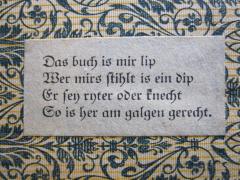 Das buch is mir lip
Wer mirs stihlt is ein dip
Er sey ryter oder knecht
So is her am galgen gerecht.